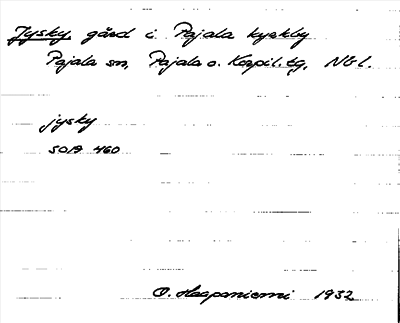 Jysky gård i Pajala kyrkby
Pajala sn, Pajala o. Korpil. tg, Nbl.
jysky
SOIA 460
O. Haapaniemi 1932